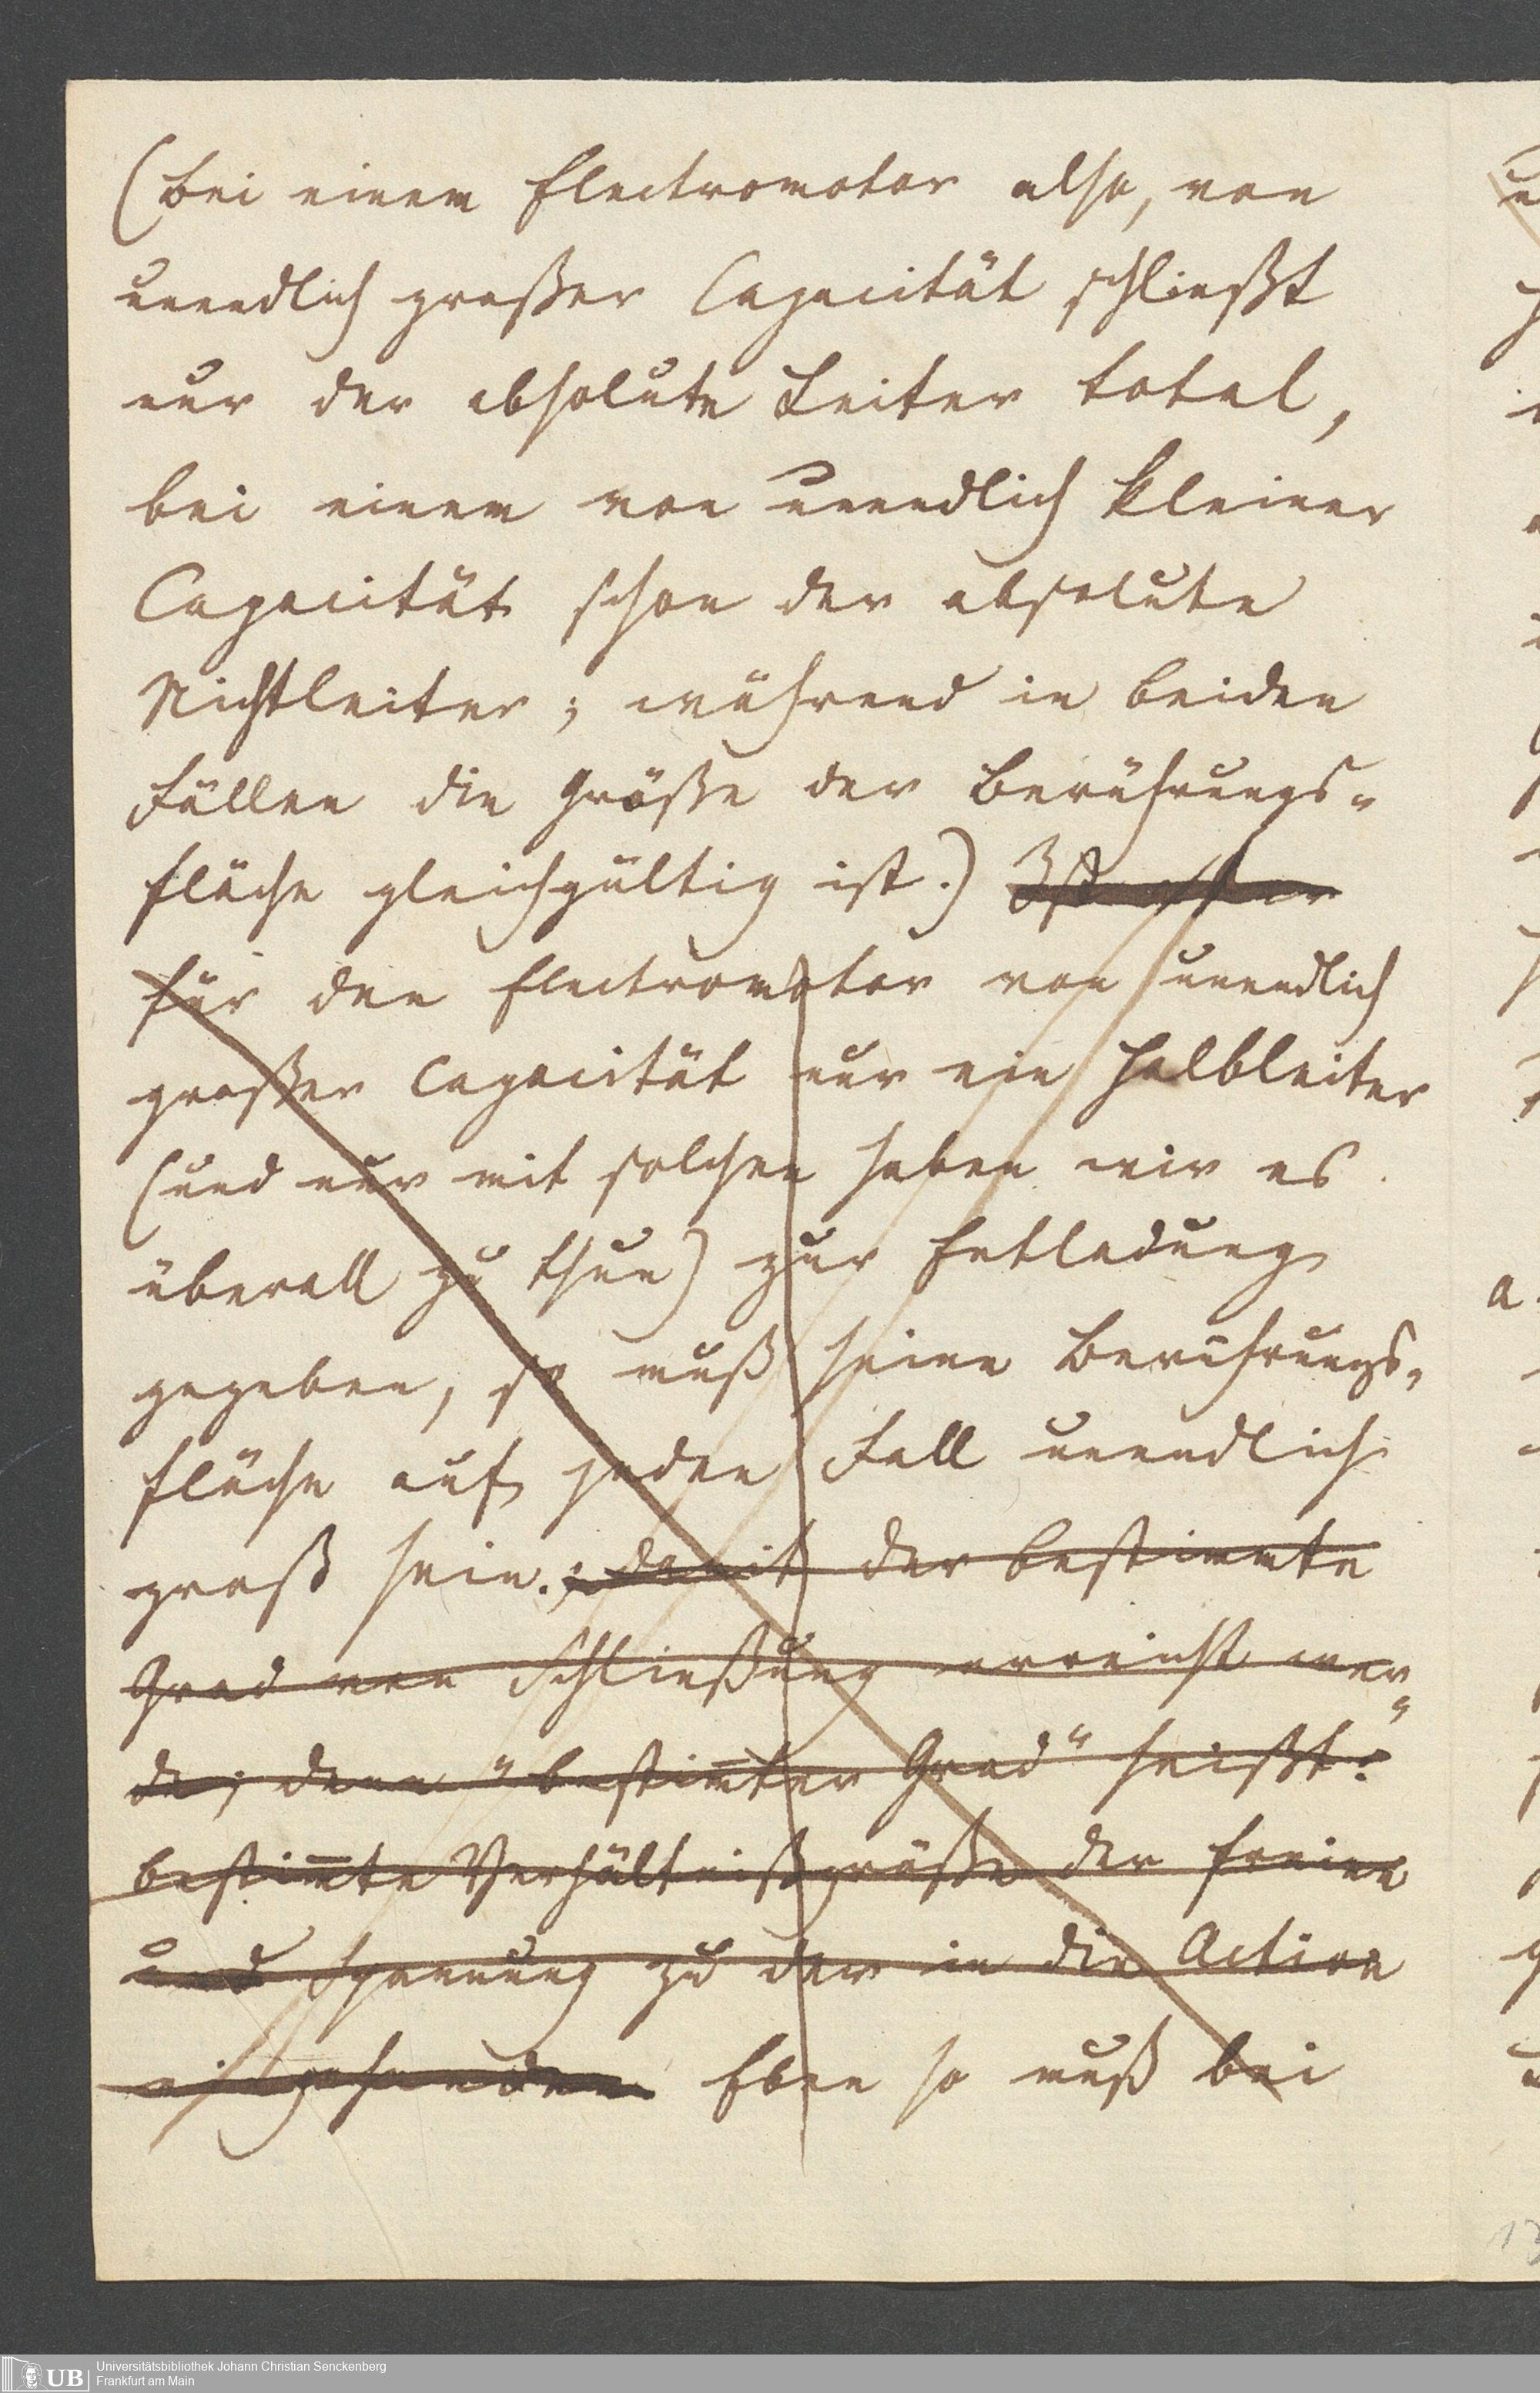 (Bei einem Electromotor also, von
unendlich großer Capacität schließt
nur der absolute Leiter total,
bei einem von unendlich kleiner
Capacität schon der absolute
Nichtleiter; während in beiden
Fällen die Größe der Berührungs-
fläche gleichgültig ist.) Ist
für den Electromotor von unendlich
großer Capacität nur ein Halbleiter
(und nur mit solchen haben wir es
überall zu thun) zur Entladung
gegeben, so muß seine Berührungs-
fläche auf jeden Fall unendlich
groß sein.; damit der bestimmte
Grad von Schließung erreicht wer-
de; denn "bestim̅ter Grad" heißt:
bestim̅te Verhältnißgröße der freien
und Spannung zu der in die Action
Eben so muß bei
a.
13
Universitätsbibliothek Johann Christian Senckenberg
Frankfurt am Main
UB